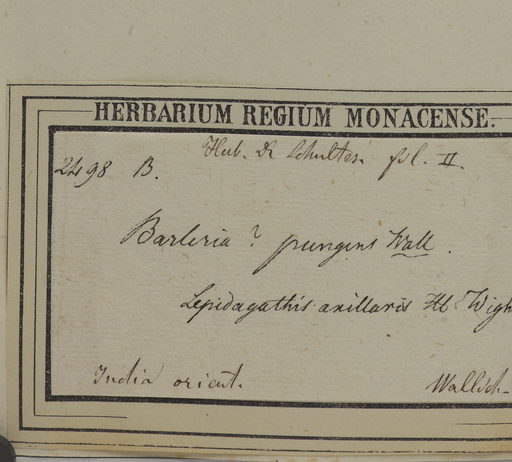 HERBARIUM REGIUM MONACENSE.
Hub. R Schultes. fol. II.
2498 B.
Barleria? pungens Wall.
Lepidagathis axillaris Hb. Wigh
India orient.
Wallich.